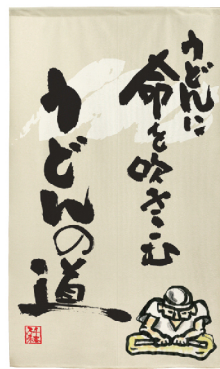 うどんに
命を吹きこむ
うどんの道